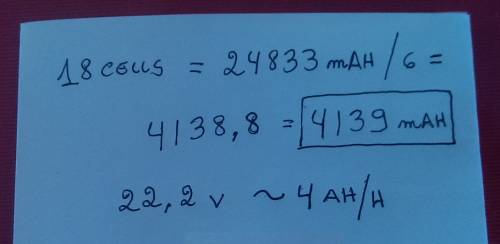 18 cells = 24833 mAH / 6 =
4138,8 = 4139 mAH
22,2 v ~ 4 AH/H